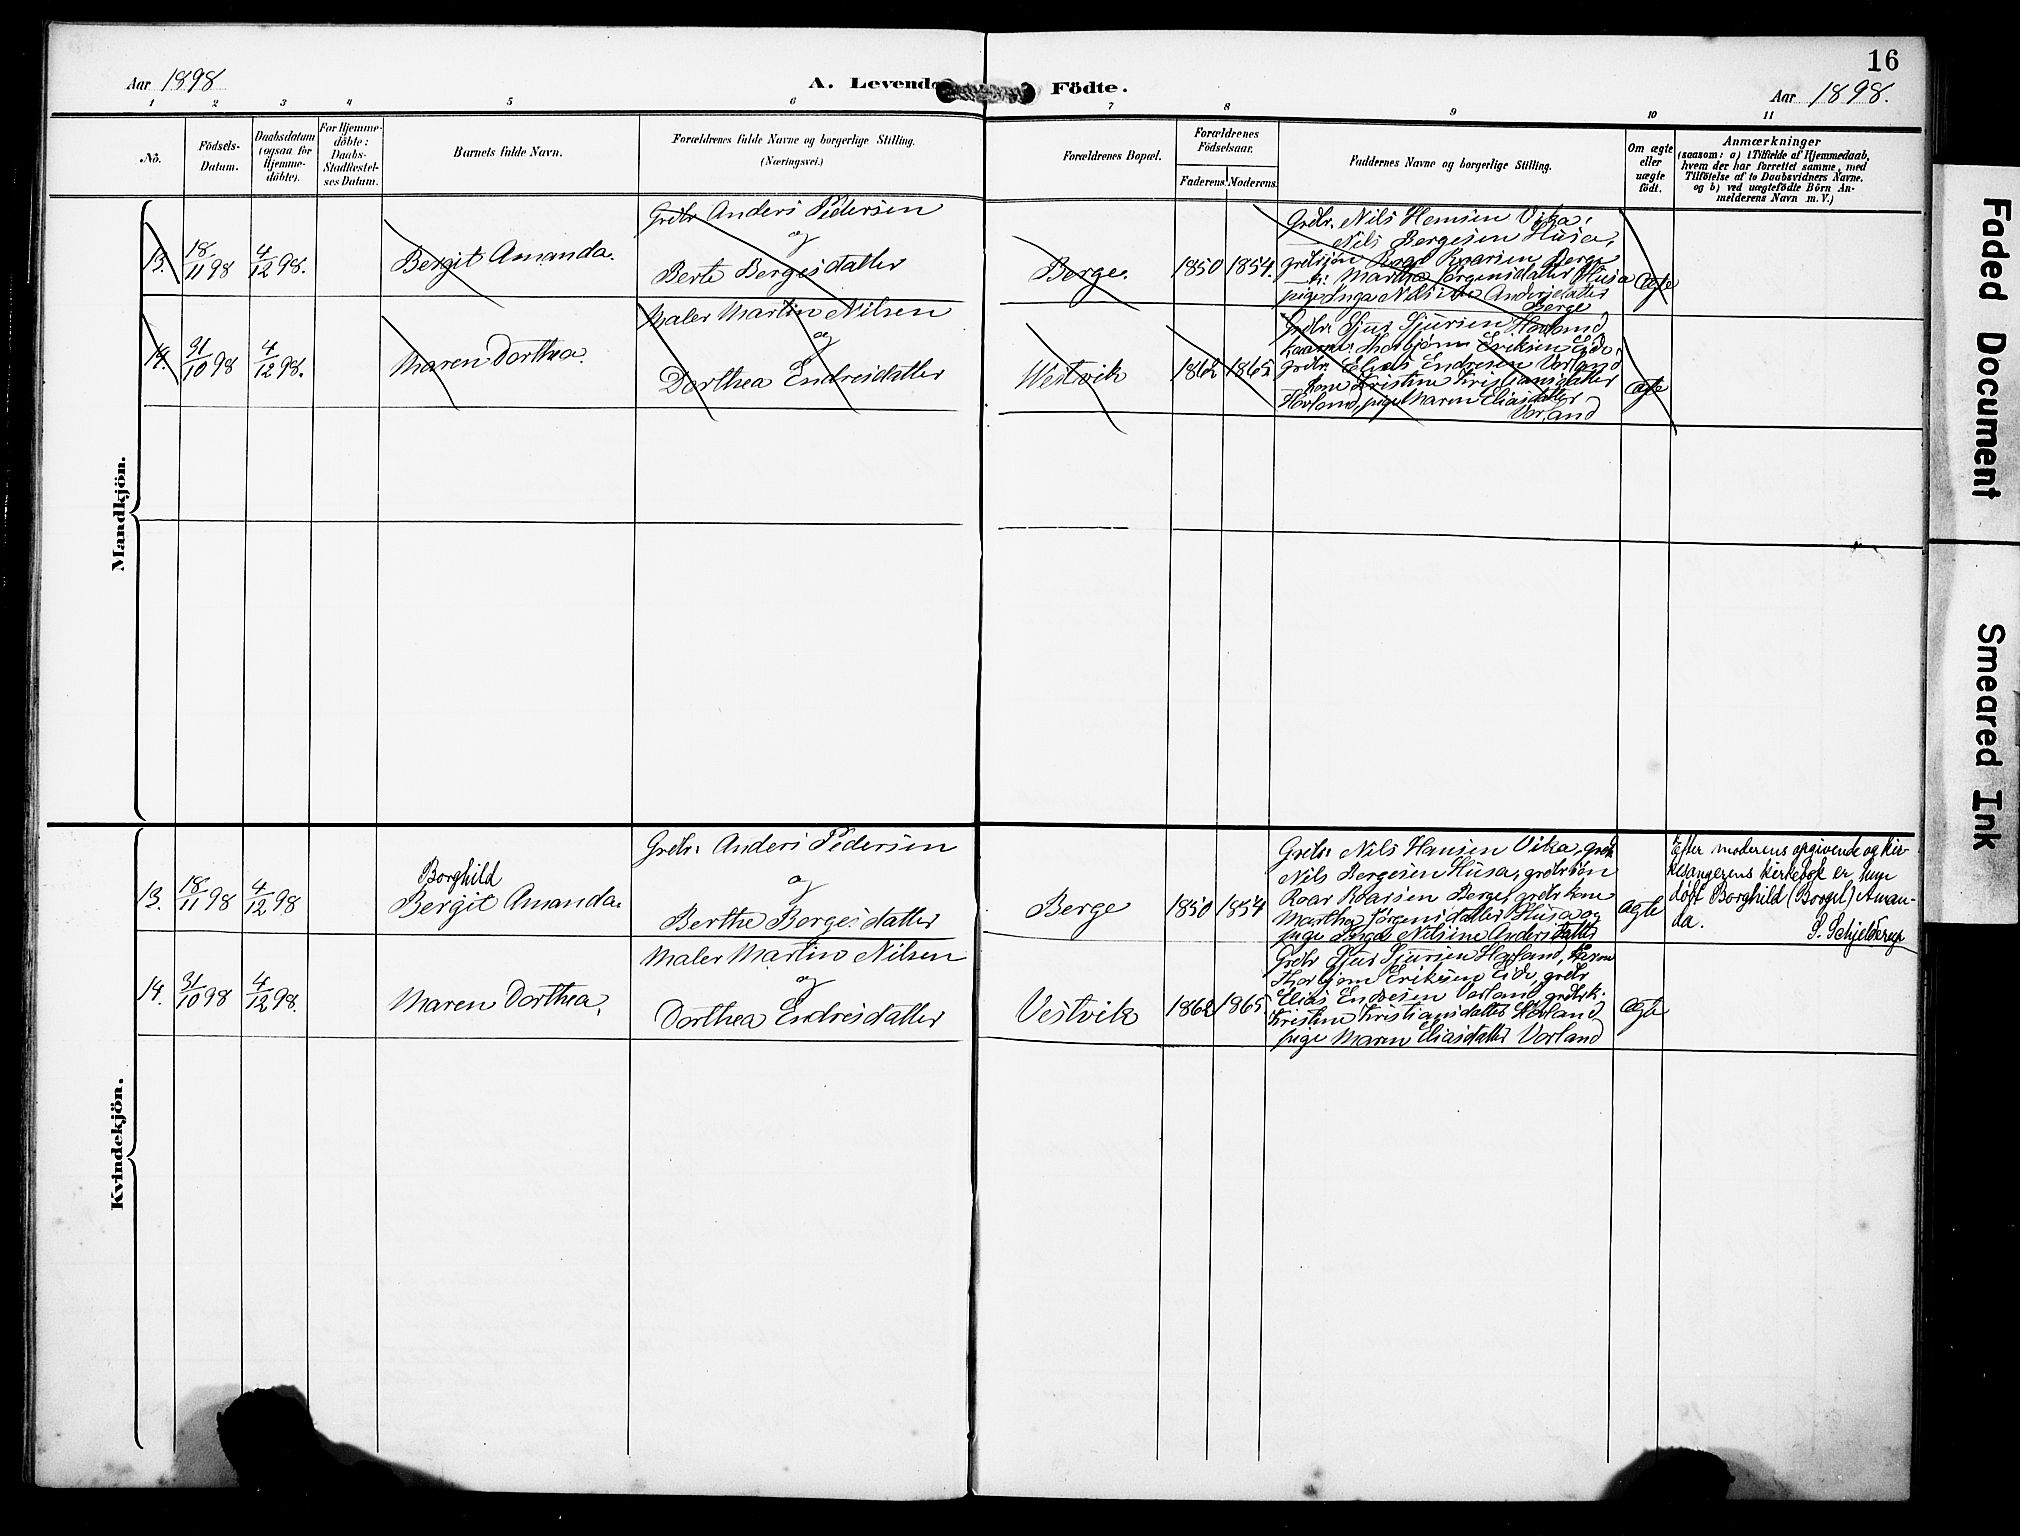 16
Aar 1898
A. Levende Födte.
Aar 1898.
1 2 3 4 5 6 7 8 9 10 11
No.
Födsels-Datum.
Daabsdatum (ogsaa for Hjemme-döbte).
For Hjemme-döbte: Daabs-Stadfæstel-ses Datum.
Barnets fulde Navn.
Forældrenes fulde Navne og borgerlige Stilling.
(Næringsvei.)
Forældrenes Bopæl.
Forældrenes Födselsaar.
Faderens. Moderens.
Faddernes Navne og borgerlige Stilling.
Om ægte eller uægte födt.
Anmærkninger
(saasom: a) i Tilfælde af Hjemmedaab,
hvem der har forrettet samme, med
Tilföielse af to Daabsvidners Navne,
og b) ved uægtefödte Börn An-
melderens Navn m. V.)
Mandkjön.
13. 18/11 98 4/12 98. Bergit Amanda.
Grdbr. Anders Pedersen
og
Berte Bergesdatter
Berge. 1850 1854.
Grdbr. Nils Hansen Vika,
Nils Bergesen Husa,
grdbrsön Roar Roarsen Berge
Martha Jørgensdatter Husa
pige Inga Nilsine Andersdatter
Berge
ægte
14. 31/10 98 4/12 98. Maren Dorthea.
Maler Martin Nilsen
og
Dorthea Endresdatter
Westvik 1862 1865
Grdbr. Sjur Sjursen Havland
Thorbjørn Eriksen Eide,
grdbr. Elias Endresen Vorland
kone Kristine Kristiansdatter
Havland, pige Maren Eliasdatter
Vorland
ægte
Kvindekjön.
13. 18/11 98 4/12 98
Borghild
Bergit Amanda.
Grdbr. Anders Pedersen
og
Berthe Bergesdatter
Berge 1850 1854
Grdbr. Nils Hansen Vika, grdb
Nils Bergesen Husa, grdbrsön
Roar Roarsen Berge, grdbr kone
Martha Jørgensdatter Husa og
pige Inga Nilsine Andersdatter
ægte
Efter moderens opgivende og Kir-
kesangerens kirkebok er hun
døbt Borghild (Borgil) Aman-
da. S. Schjelderup
14. 31/10 98 4/12 98. Maren Dorthea,
Maler Martin Nilsen
og
Dorthea Endresdatter
Vestvik 1862 1865
Grdbr Sjur Sjursen Havland,
Thorbjørn Eriksen Eide, grdbr
Elias Endresen Vorland, grdbrk.
Kristine Kristiansdatter Havland
pige Maren Eliasdatter Vorland
ægte
Faded Document
Smeared Ink